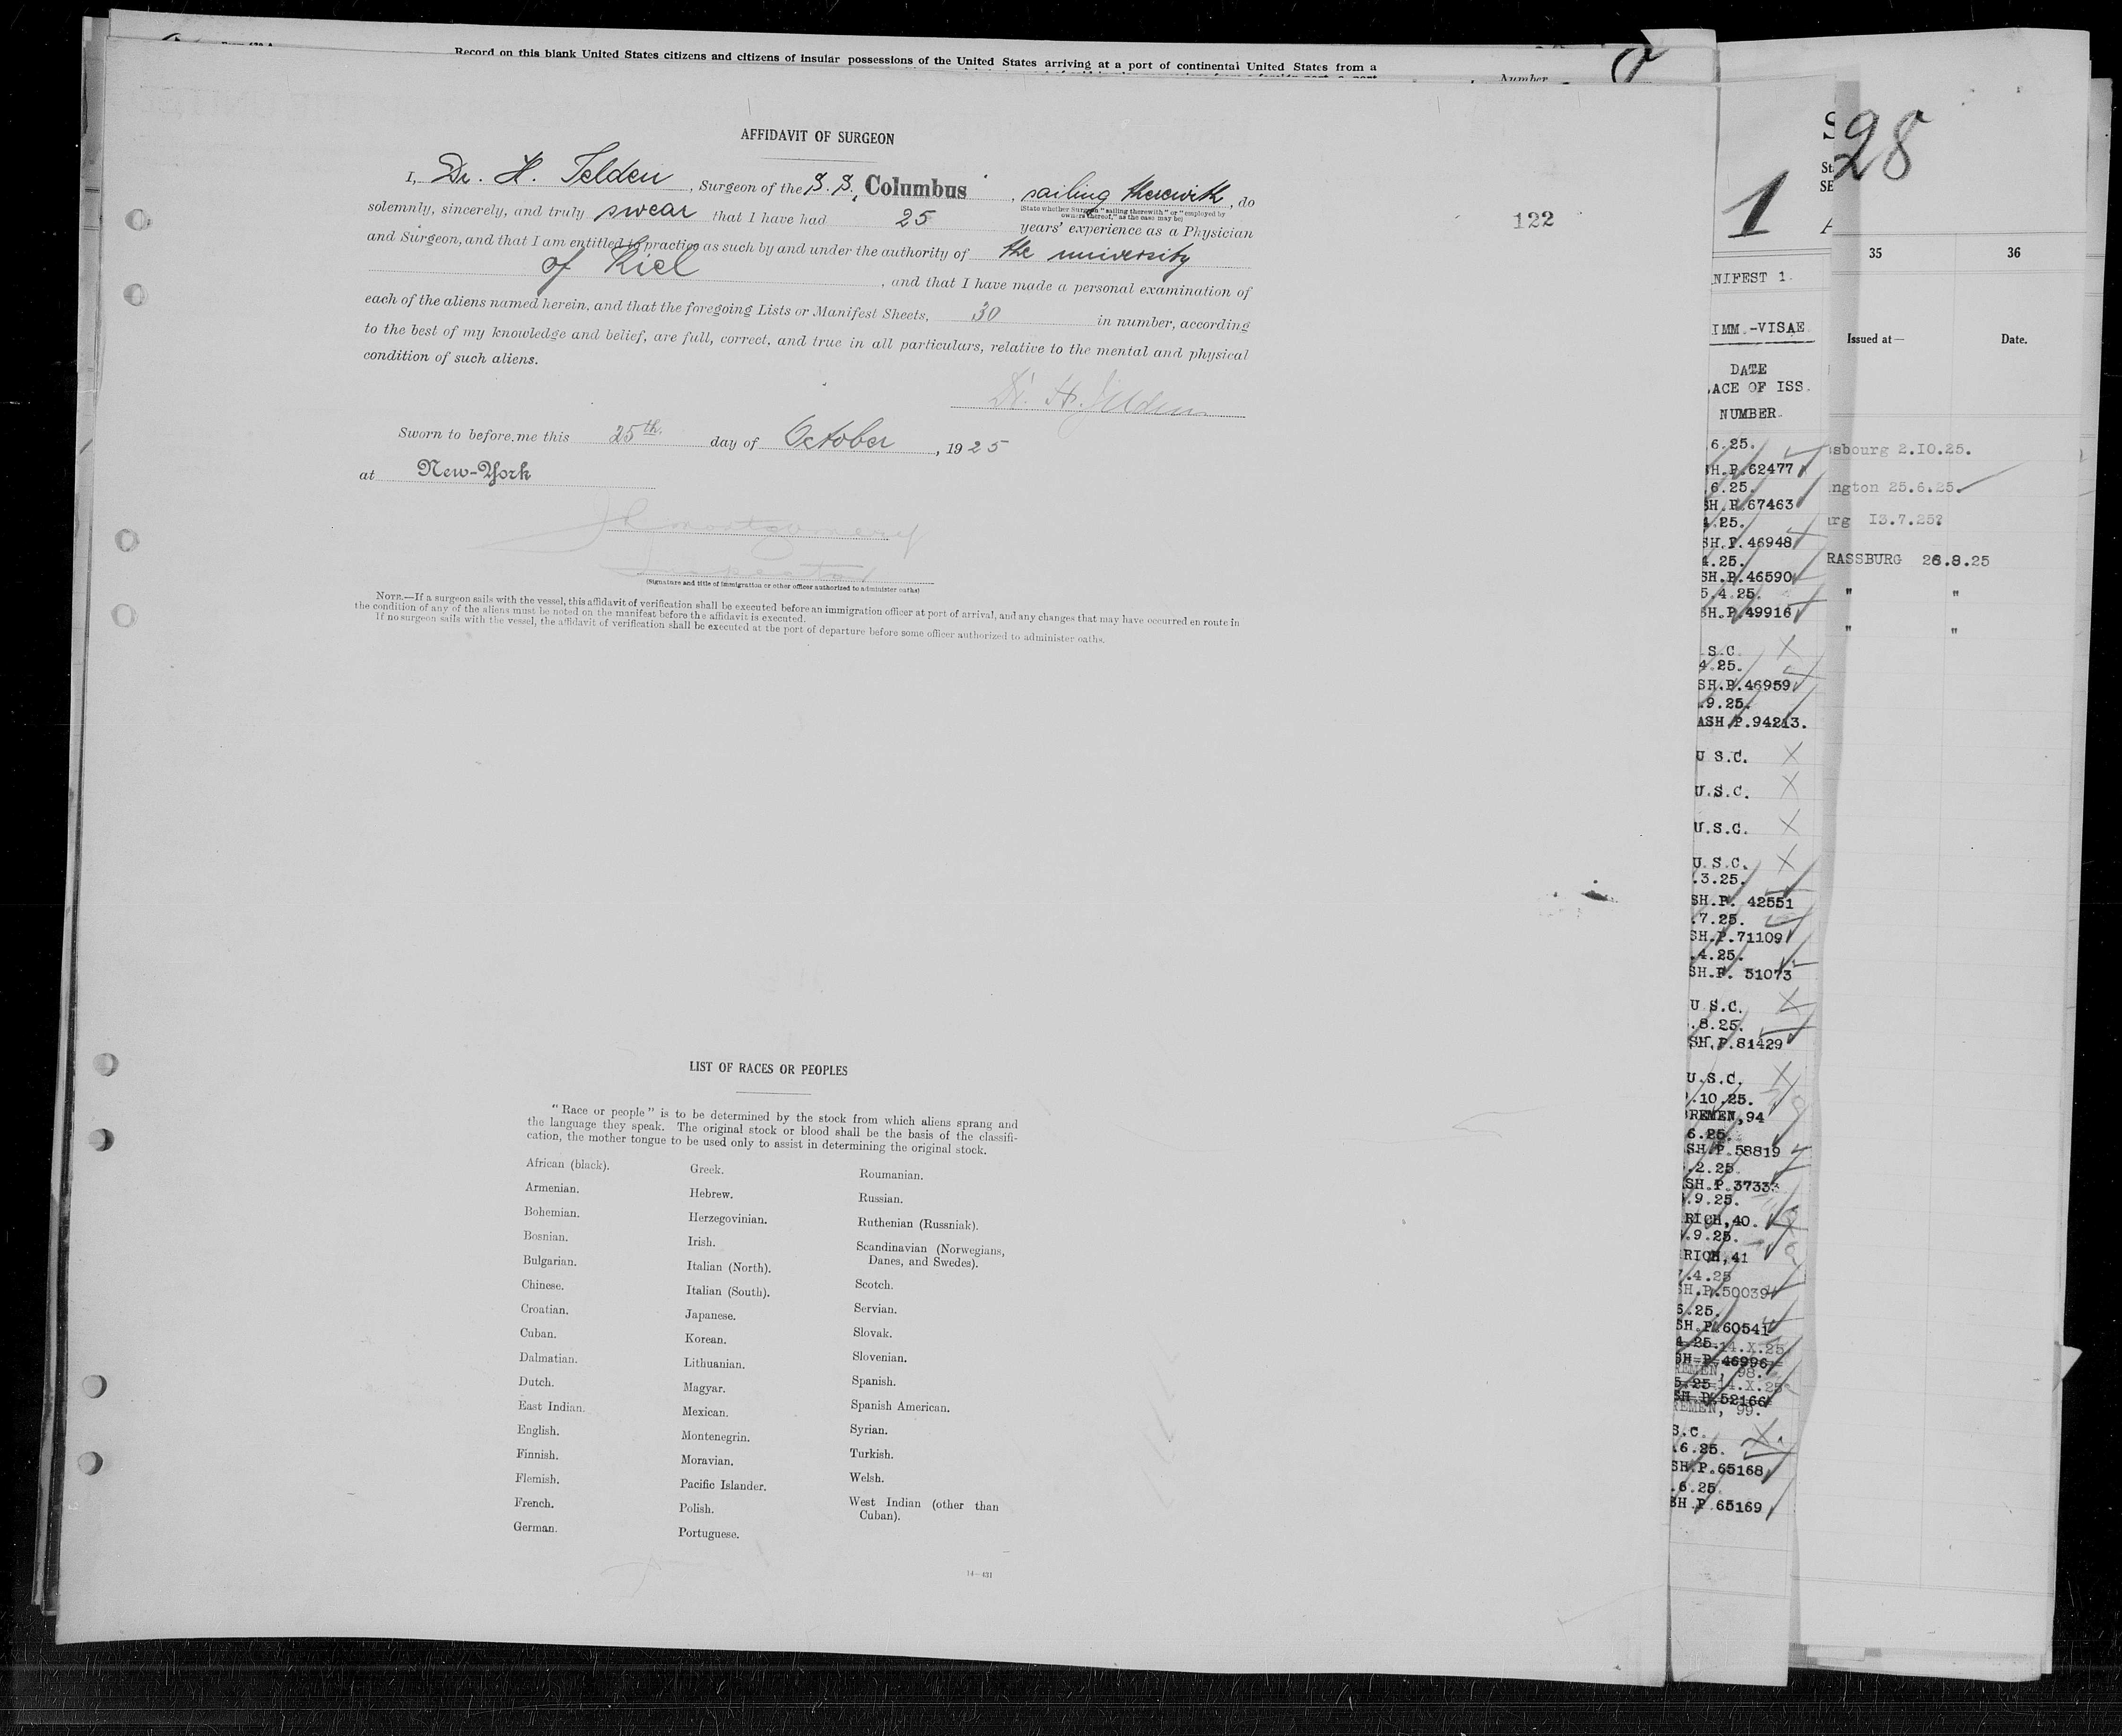 Record on this blank United States citizens and citizens of insular possessions of the United States arriving at a port of continental United States from a
Number
AFFIDAVIT OF SURGEON
I, Dr. H. Telden, Surgeon of the S. S. Columbus, sailing therewith, do
(State whether Surgeon "sailing therewith" or "employed by
owners thereof," as the case may be)
solemnly, sincerely, and truly swear that I have had 25 years' experience as a Physician
and Surgeon, and that I am entitled to practice as such by and under the authority of the university
of Kiel, and that I have made a personal examination of
each of the aliens named herein, and that the foregoing Lists or Manifest Sheets, 30 in number, according
to the best of my knowledge and belief, are full, correct, and true in all particulars, relative to the mental and physical
condition of such aliens.
Dr. H. Telden
Sworn to before me this 25th day of October, 1925
at New-York
Montgomery
Inspector
(Signature and title of immigration or other officer authorized to administer oaths)
NOTE.—If a surgeon sails with the vessel, this affidavit of verification shall be executed before an immigration officer at port of arrival, and any changes that may have occurred en route in
the condition of any of the aliens must be noted on the manifest before the affidavit is executed.
If no surgeon sails with the vessel, the affidavit of verification shall be executed at the port of departure before some officer authorized to administer oaths.
122
LIST OF RACES OR PEOPLES
"Race or people" is to be determined by the stock from which aliens sprang and
the language they speak. The original stock or blood shall be the basis of the classifi-
cation, the mother tongue to be used only to assist in determining the original stock.
African (black).
Armenian.
Bohemian.
Bosnian.
Bulgarian.
Chinese.
Croatian.
Cuban.
Dalmatian.
Dutch.
East Indian.
English.
Finnish.
Flemish.
French.
German.
Greek.
Hebrew.
Herzegovinian.
Irish.
Italian (North).
Italian (South).
Japanese.
Korean.
Lithuanian.
Magyar.
Mexican.
Montenegrin.
Moravian.
Pacific Islander.
Polish.
Portuguese.
Roumanian.
Russian.
Ruthenian (Russniak).
Scandinavian (Norwegians,
Danes, and Swedes).
Scotch.
Servian.
Slovak.
Slovenian.
Spanish.
Spanish American.
Syrian.
Turkish.
Welsh.
West Indian (other than
Cuban).
14—631
1
NIFEST 1.
IMM.-VISAE
DATE
ACE OF ISS.
NUMBER.
6.25.
SH.P.62477
.6.25.
SH.P.67463
4.25.
SH.P.46948
4.25.
SH.P.46590
5.4.25.
SH.P.49916
S.C.
4.25.
SH.P.46959
.9.25.
ASH.P.94213.
U.S.C.
U.S.C.
U.S.C.
U.S.C.
.3.25.
SH.P. 42551
.7.25.
SH.P.71109
.4.25.
SH.P. 51073
U.S.C.
.8.25.
SH.P.81429
U.S.C.
.10.25.
REMEN,94
6.25.
SH.P.58819
.2.25.
SH.P.37333
.9.25.
RICH,40.
.9.25.
RICH,41
7.4.25
SH.P.50039
6.25.
SH.P.60541
4.25. 14.X.25
SH.P.46996
REMEN, 98.
5.25 14.X.25
SH.P.52166
REMEN, 99.
S.C.
.6.25.
SH.P.65168
.6.25.
SH.P.65169
28
St
SE
35 36
Issued at— Date.
sbourg 2.10.25.
ngton 25.6.25.
urg 13.7.25?
RASSBURG 26.8.25
" "
" "